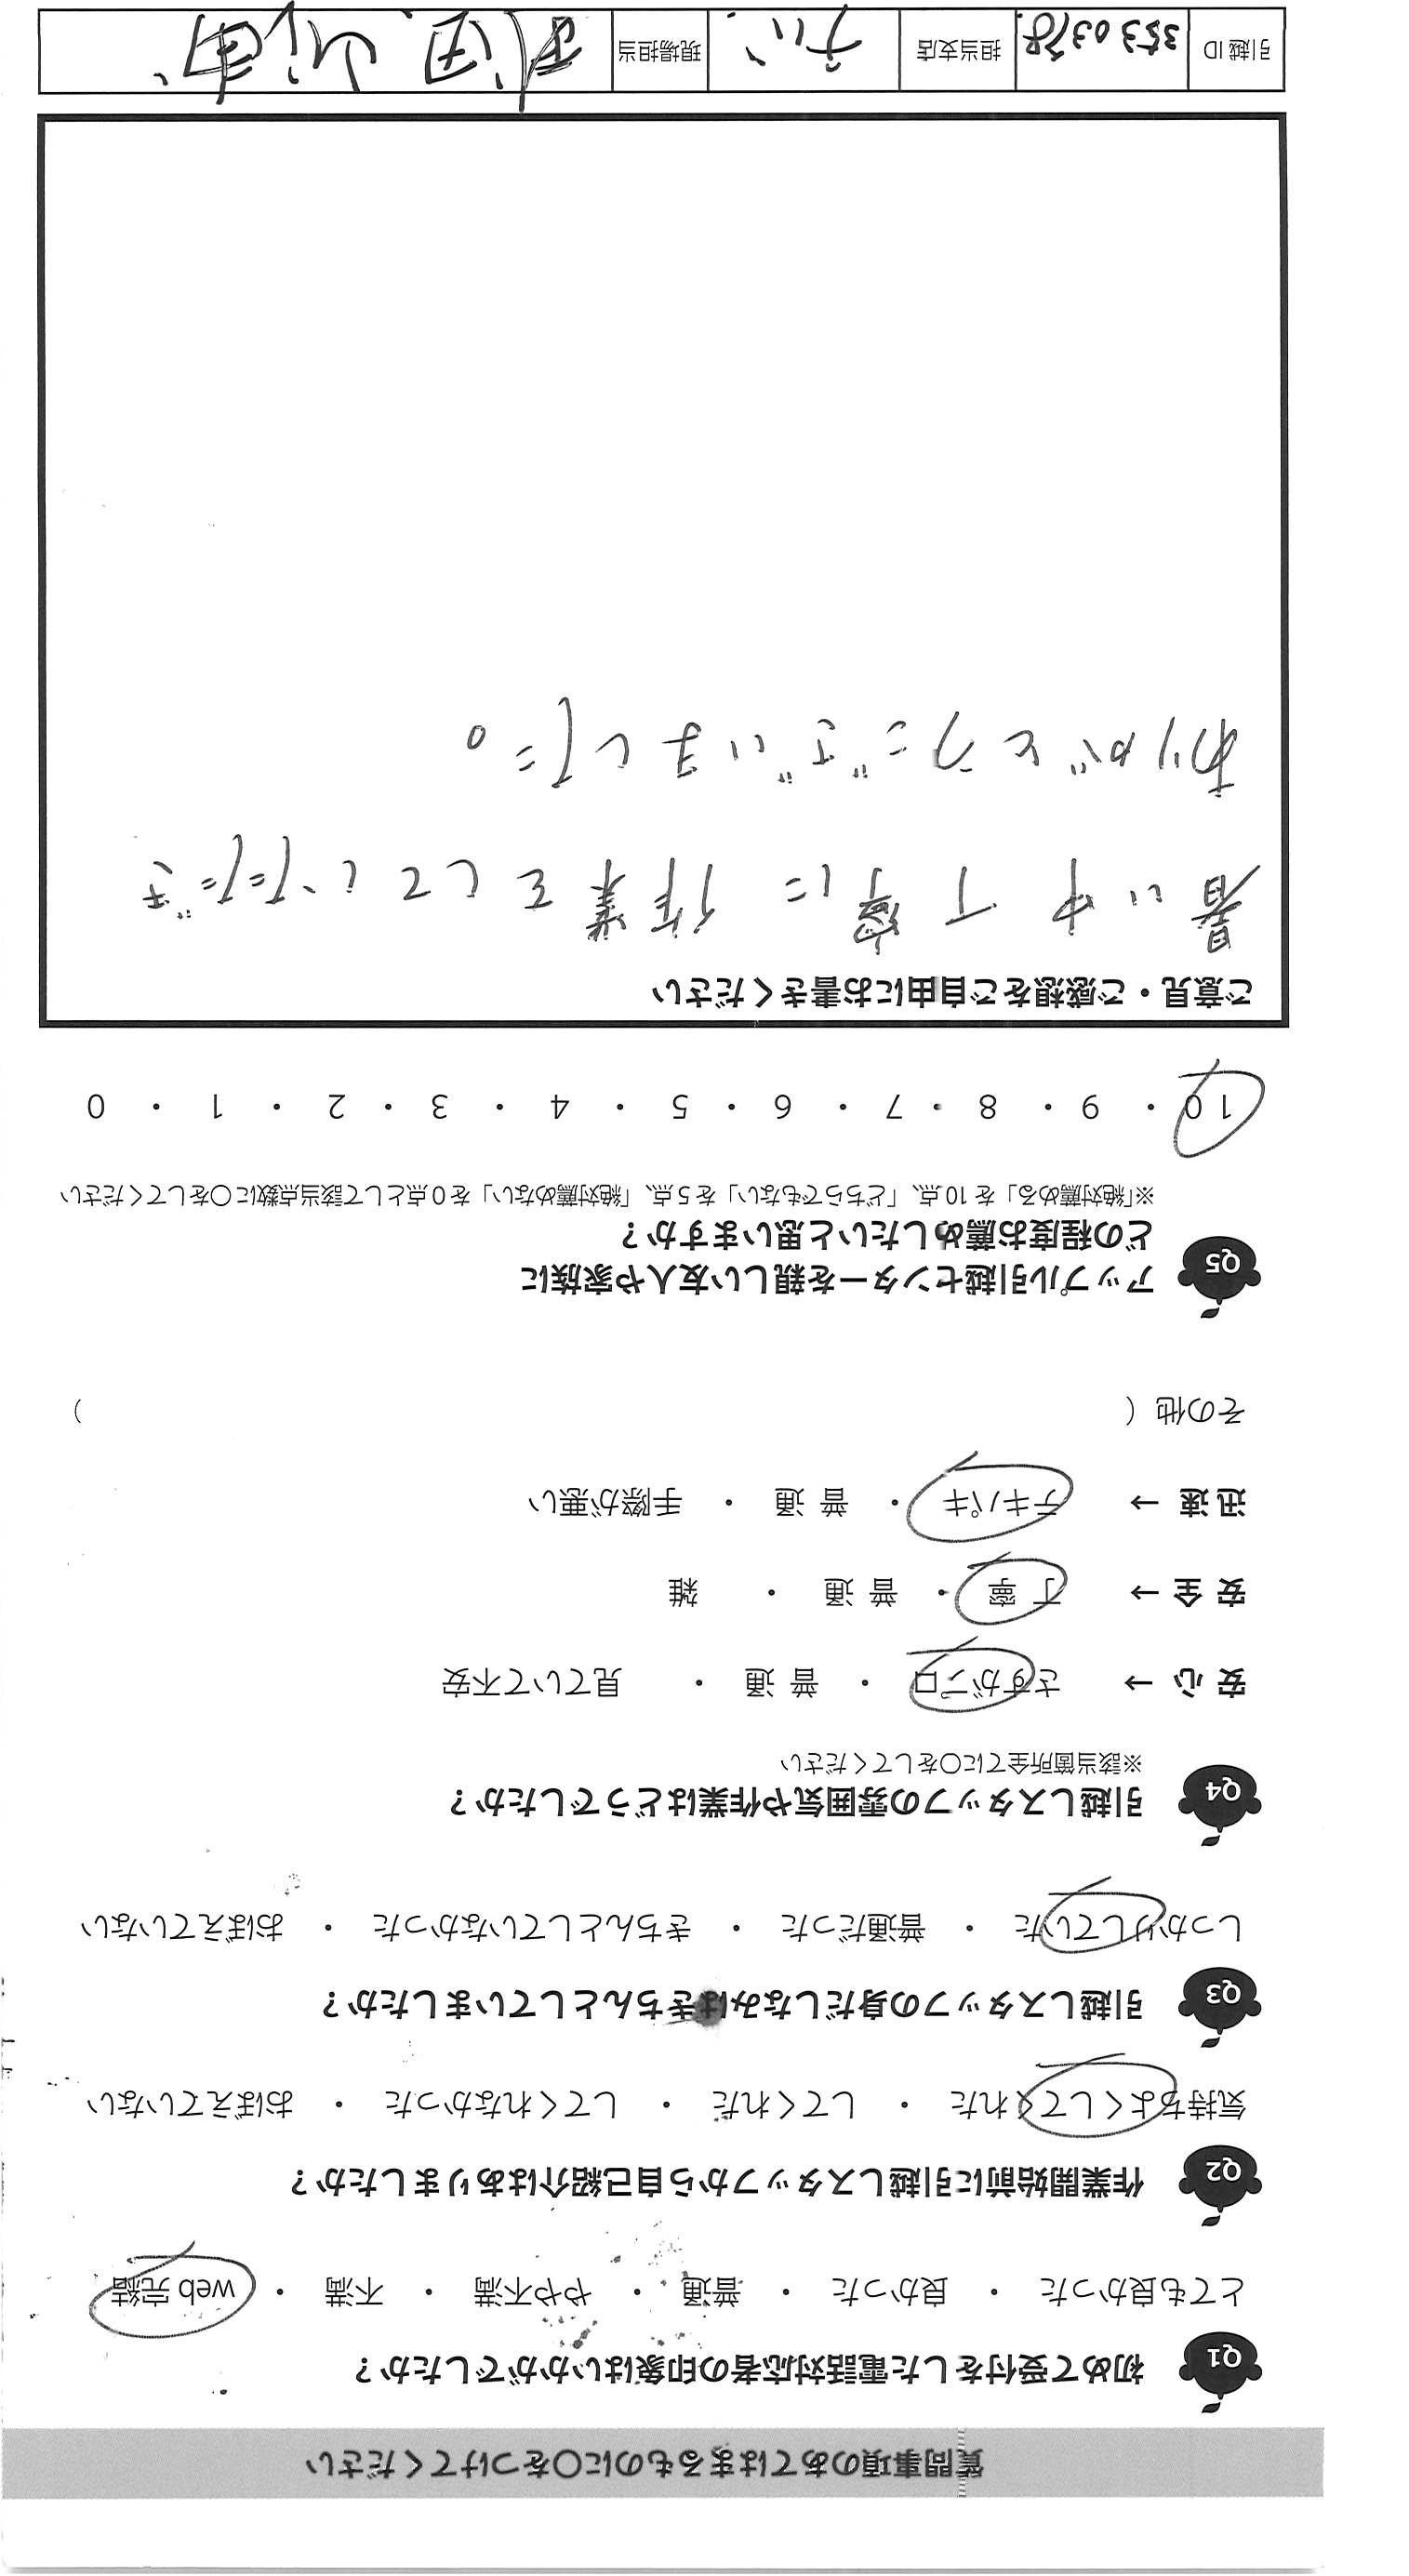 質問事項のあてはまるものに〇をつけてください
Q1 初めて受付をした電話対応者の印象はいかがでしたか?
とても良かった ・ 良かった ・ 普通 ・ やや不満 ・ 不満 ・ web 完結
Q2 作業開始前に引越しスタッフから自己紹介はありましたか?
気持ちよくしてくれた ・ してくれた ・ してくれなかった ・ おぼえていない
Q3 引越しスタッフの身だしなみはきちんとしていましたか?
しっかりしていた ・ 普通だった ・ きちんとしていなかった ・ おぼえていない
Q4 引越しスタッフの雰囲気や作業はどうでしたか?
※該当箇所全てに〇をしてください
安 心 → さすがプロ ・ 普 通 ・ 見ていて不安
安 全 → 丁 寧 ・ 普 通 ・ 雑
迅 速 → テキパキ ・ 普 通 ・ 手際が悪い
その他 ( )
Q5 アップル引越センターを親しい友人や家族に
どの程度お薦めしたいと思いますか?
※「絶対薦める」を 10 点、「どちらでもない」を 5 点、「絶対薦めない」を 0 点として該当点数に〇をしてください
10 ・ 9 ・ 8 ・ 7 ・ 6 ・ 5 ・ 4 ・ 3 ・ 2 ・ 1 ・ 0
ご意見・ご感想をご自由にお書きください
暑い中 丁寧に 作業をしていただき
ありがとうございました。
引越 ID 3530378 担当支店 千バ 現場担当